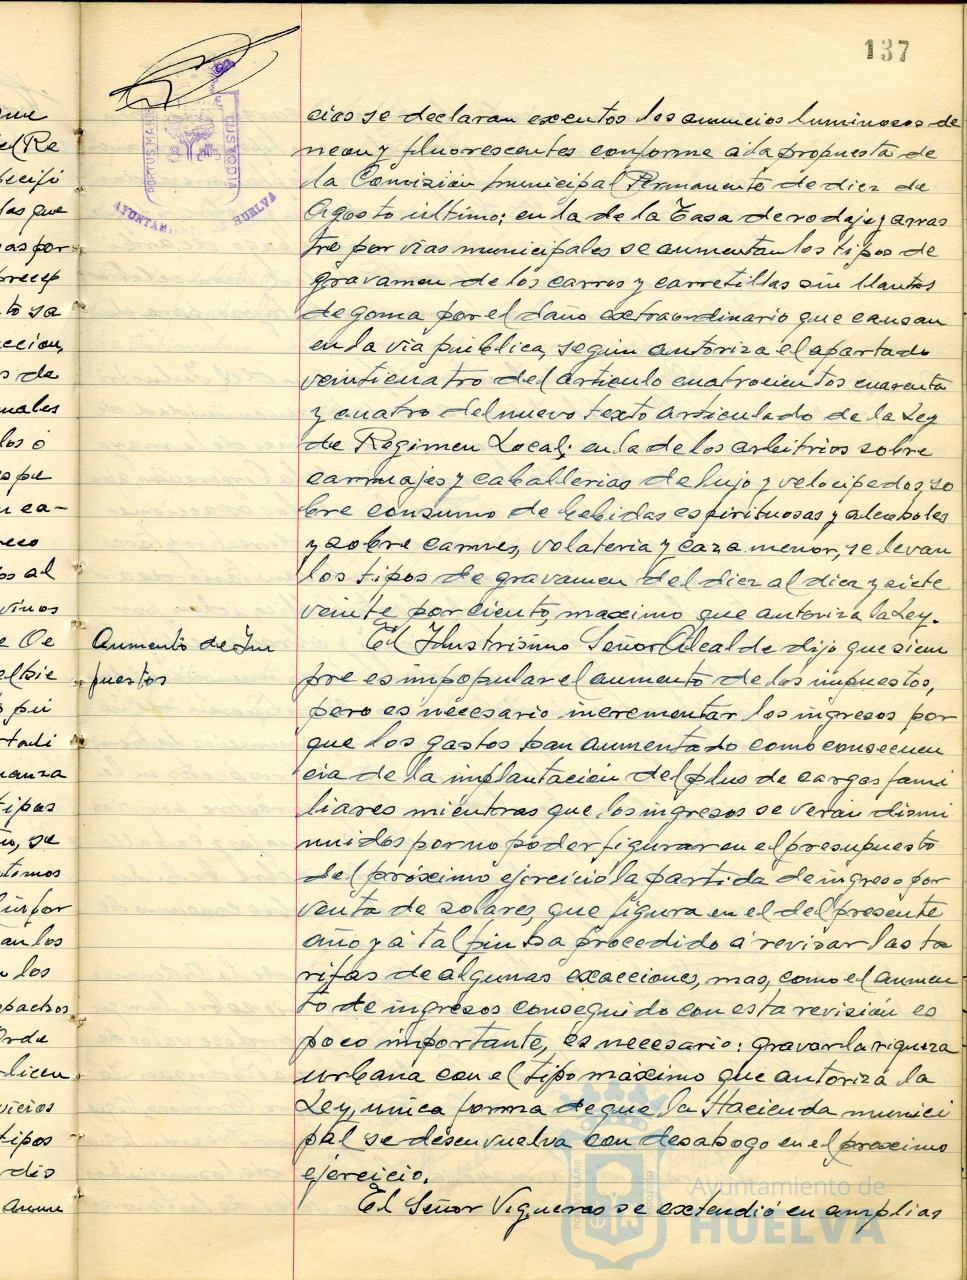 137
PORTUS MARIS
CUSTODIA
AYUNTAMIENTO DE HUELVA
cias se declaran exentos los anuncios luminosos de
neon y fluorescentes conforme a la propuesta de
la Comisión municipal Permanente de diez de
Agosto último; en la de la Tasa de rodaje y arras
tre por vias municipales se aumentan los tipos de
gravamen de los carros y carretillas sin llantas
de goma por el daño extraordinario que causan
en la via pública, según autoriza el apartado
veinticuatro del articulo cuatrocientos cuarenta
y cuatro del nuevo texto articulado de la Ley
de Regimen Local; en la de los arbitrios sobre
carruajes y caballerias de lujo y velocipedos, so
bre consumo de bebidas espirituosas y alcoholes
y sobre carnes, volateria y caza menor, se elevan
los tipos de gravamen del diez al diez y siete
veinte por ciento, maximo que autoriza la Ley.
Aumento de Im
puestos
El Ilustrisimo Señor Alcalde dijo que siem
pre es impopular el aumento de los impuestos,
pero es necesario incrementar los ingresos por
que los gastos han aumentado como consecuen
cia de la implantación del plus de cargas fami
liares mientras que los ingresos se verán dismi
nuidos por no poder figurar en el presupuesto
del próximo ejercicio la partida de ingreso por
venta de solares, que figura en el del presente
año y á tal fin ha procedido á revisar las ta
rifas de algunas exacciones, mas, como el aumen
to de ingresos conseguido con esta revisión es
poco importante, es necesario: gravar la riqueza
urbana con el tipo máximo que autoriza la
Ley, unica forma de que la Hacienda munici
pal se desenvuelva con desahogo en el proximo
ejercicio.
El Señor Vigueras se extendió en amplias
Ayuntamiento de
HUELVA